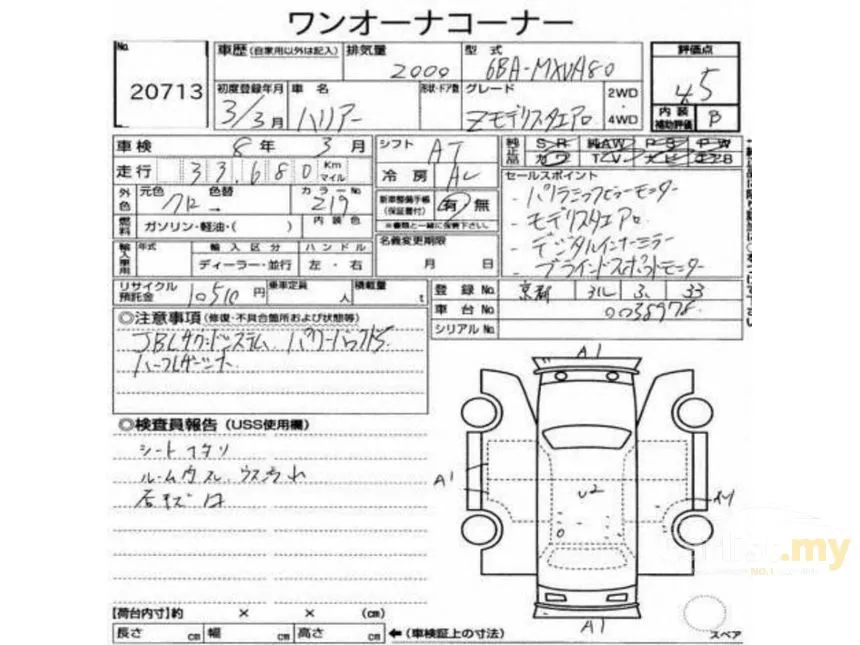 ワンオーナコーナー
No.
20713
車歴(自家用以外は記入)
排気量
2000
型式
6BA-MXUA80
評価点
4.5
初度登録年月
3/3月
車名
ハリアー
形状・ドア数
グレード
Zモデリスタエアロ
2WD
・
4WD
内装
補助評価
B
車検
8年3月
走行
33,680
Km
マイル
外色
元色
クロ
色替
→
カラーNo.
219
燃料
ガソリン・軽油・( )
内装色
輸入車用
年式
輸入区分
ハンドル
ディーラー・並行
左・右
リサイクル
預託金
10510円
乗車定員
人
積載量
t
シフト
AT
冷房
AC
新車整備手帳
(保証書付)
有・無
※書類と一緒に保管下さい。
名義変更期限
月 日
純正品
SR
純AW
PS
PW
カワ
TV
ナビ
エアB
セールスポイント
・パノラミックビューモニター
・モデリスタエアロ
・デジタルインナーミラー
・ブラインドスポットモニター
登録No.
京都
33
車台No.
0038978
シリアルNo.
◎注意事項(修復・不具合箇所および状態等)
JBLサウンドシステム パワーバックドア
ハーフレザーシート
◎検査員報告(USS使用欄)
シート
ルーム
A1
A1
U2
A1
スペア
【荷台内寸】約 × × (cm)
長さ cm 幅 cm 高さ cm ←(車検証上の寸法)
carlist.my
NO.1